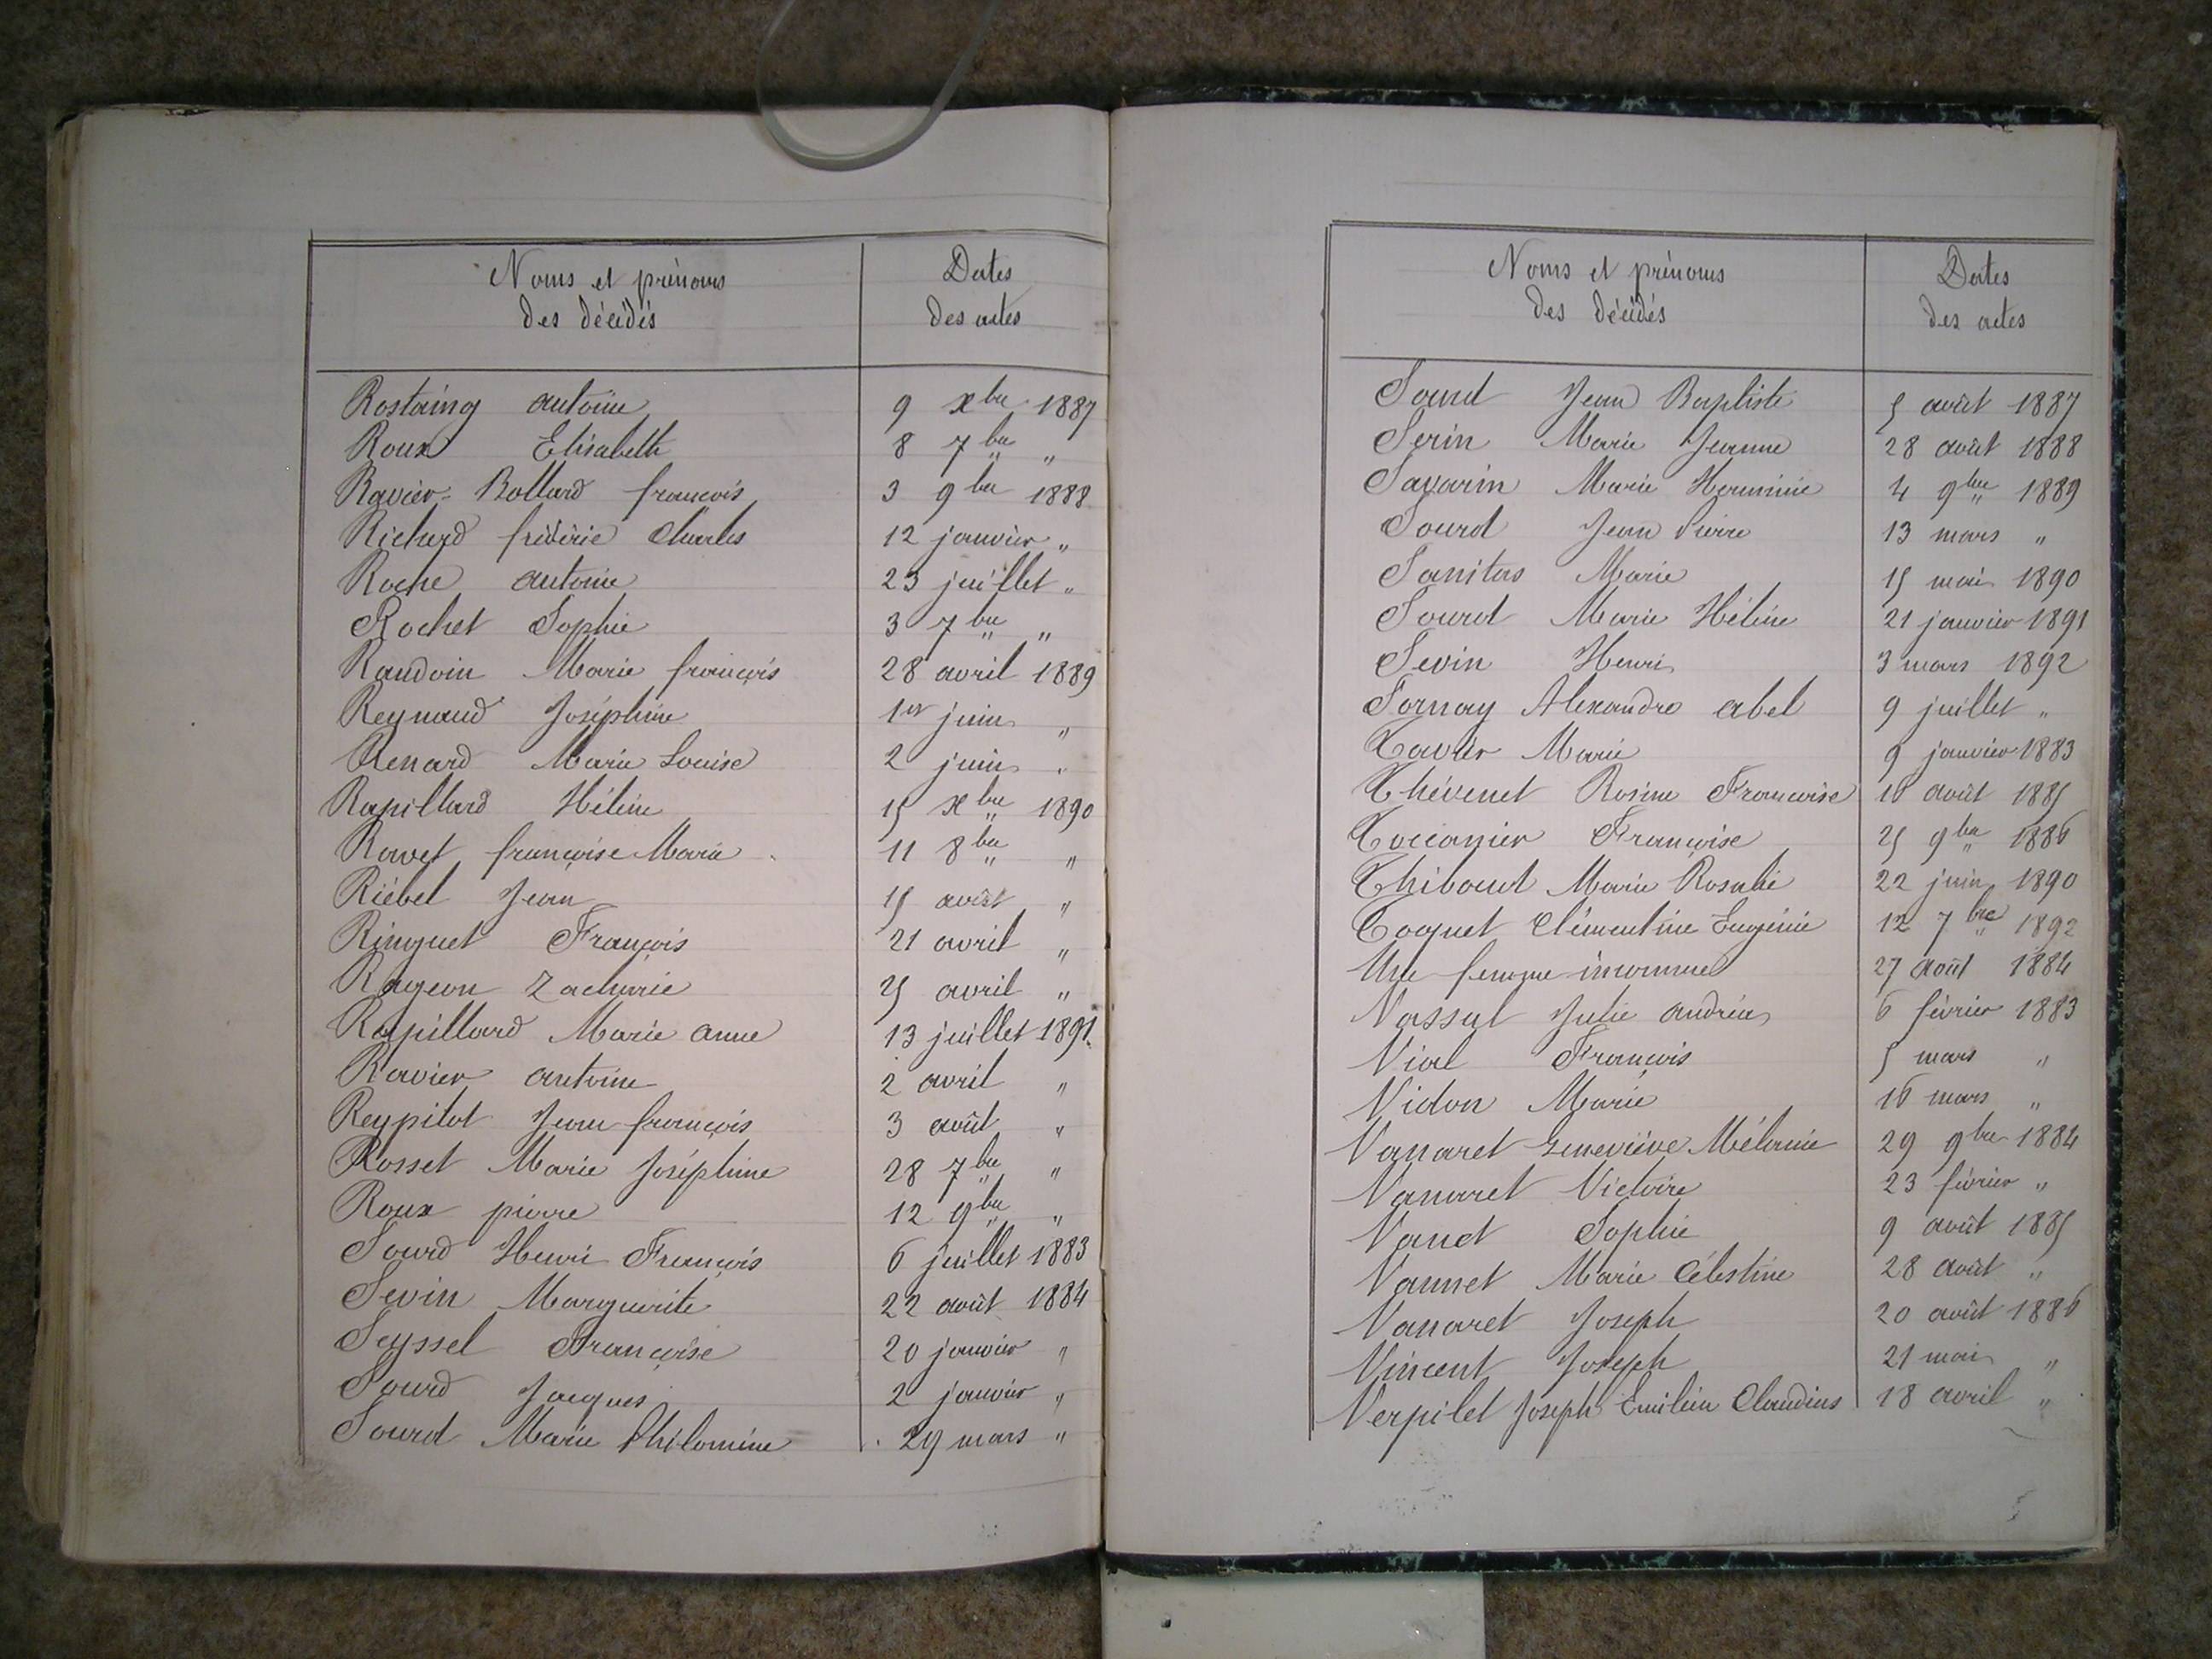 Noms et prénoms Dates
des décédés des actes
Rostaing antoine 9 xbre 1887
Roux Elisabeth 8 7bre "
Ravier-Bollard françois 3 9bre 1888
Richard frédéric Charles 12 janvier "
Roche antoine 23 juillet "
Rochet Sophie 3 7bre "
Raudoin Marie françois 28 avril 1889
Reynaud Joséphine 1er juin "
Renard Marie Louise 2 juin "
Rapillard Hélène 15 xbre 1890
Ravet françoise Marie 11 8bre "
Riébel Jean 15 août "
Rinquet François 21 avril "
Rageon Zacharie 25 avril "
Rapillard Marie anne 13 juillet 1891
Ravier antoine 2 avril "
Reypitot Jean françois 3 août "
Rosset Marie Joséphine 28 7bre "
Roux pierre 12 9bre "
Sourd Henri François 6 juillet 1883
Sevin Marguerite 22 août 1884
Seyssel Françoise 20 janvier "
Sourd Jacques 2 janvier "
Sourd Marie Philomène 29 mars "
Noms et prénoms Dates
des décédés des actes
Sourd Jean Baptiste 5 août 1887
Serin Marie Jeanne 28 août 1888
Savarin Marie Herminie 4 9bre 1889
Sourd Jean Pierre 13 mars "
Sanitas Marie 15 mai 1890
Sourd Marie Hélène 21 janvier 1891
Sevin Henri 3 mars 1892
Sornay Alexandre abel 9 juillet "
Tavier Marie 9 janvier 1883
Thévenet Rosine Françoise 10 août 1885
Toccanier Françoise 25 9bre 1886
Thibout Marie Rosalie 22 juin 1890
Toquet Clémentine Eugénie 12 7bre 1892
Une femme inconnue 27 août 1884
Vassal Julie andréa 6 février 1883
Vial François 5 mars "
Vidon Marie 16 mars "
Vanaret Geneviève Mélanie 29 9bre 1884
Vanaret Victoire 23 février "
Vanet Sophie 9 août 1885
Vannet Marie Célestine 28 août "
Vanaret Joseph 20 août 1886
Vincent Joseph 21 mai "
Verpilet Joseph Emilien Claudius 18 avril "